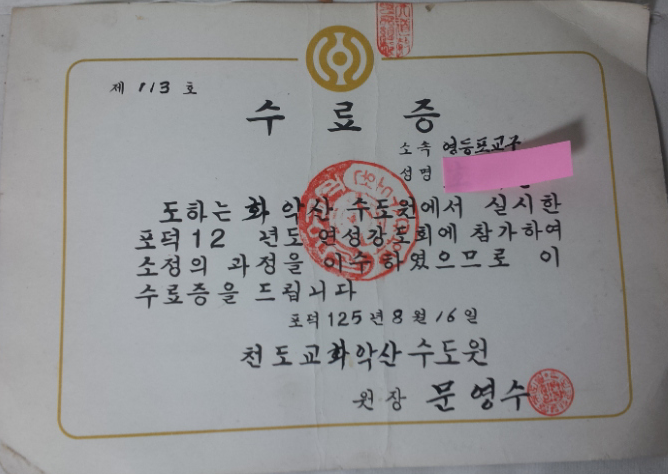 제 113 호
수 료 증
소속 영등포교구
성명
도하는 화악산 수도원에서 실시한
포덕12 년도 연성강도회에 참가하여
소정의 과정을 이수하였으므로 이
수료증을 드립니다
포덕125년 8월 16일
천도교화악산수도원
원장 문영수